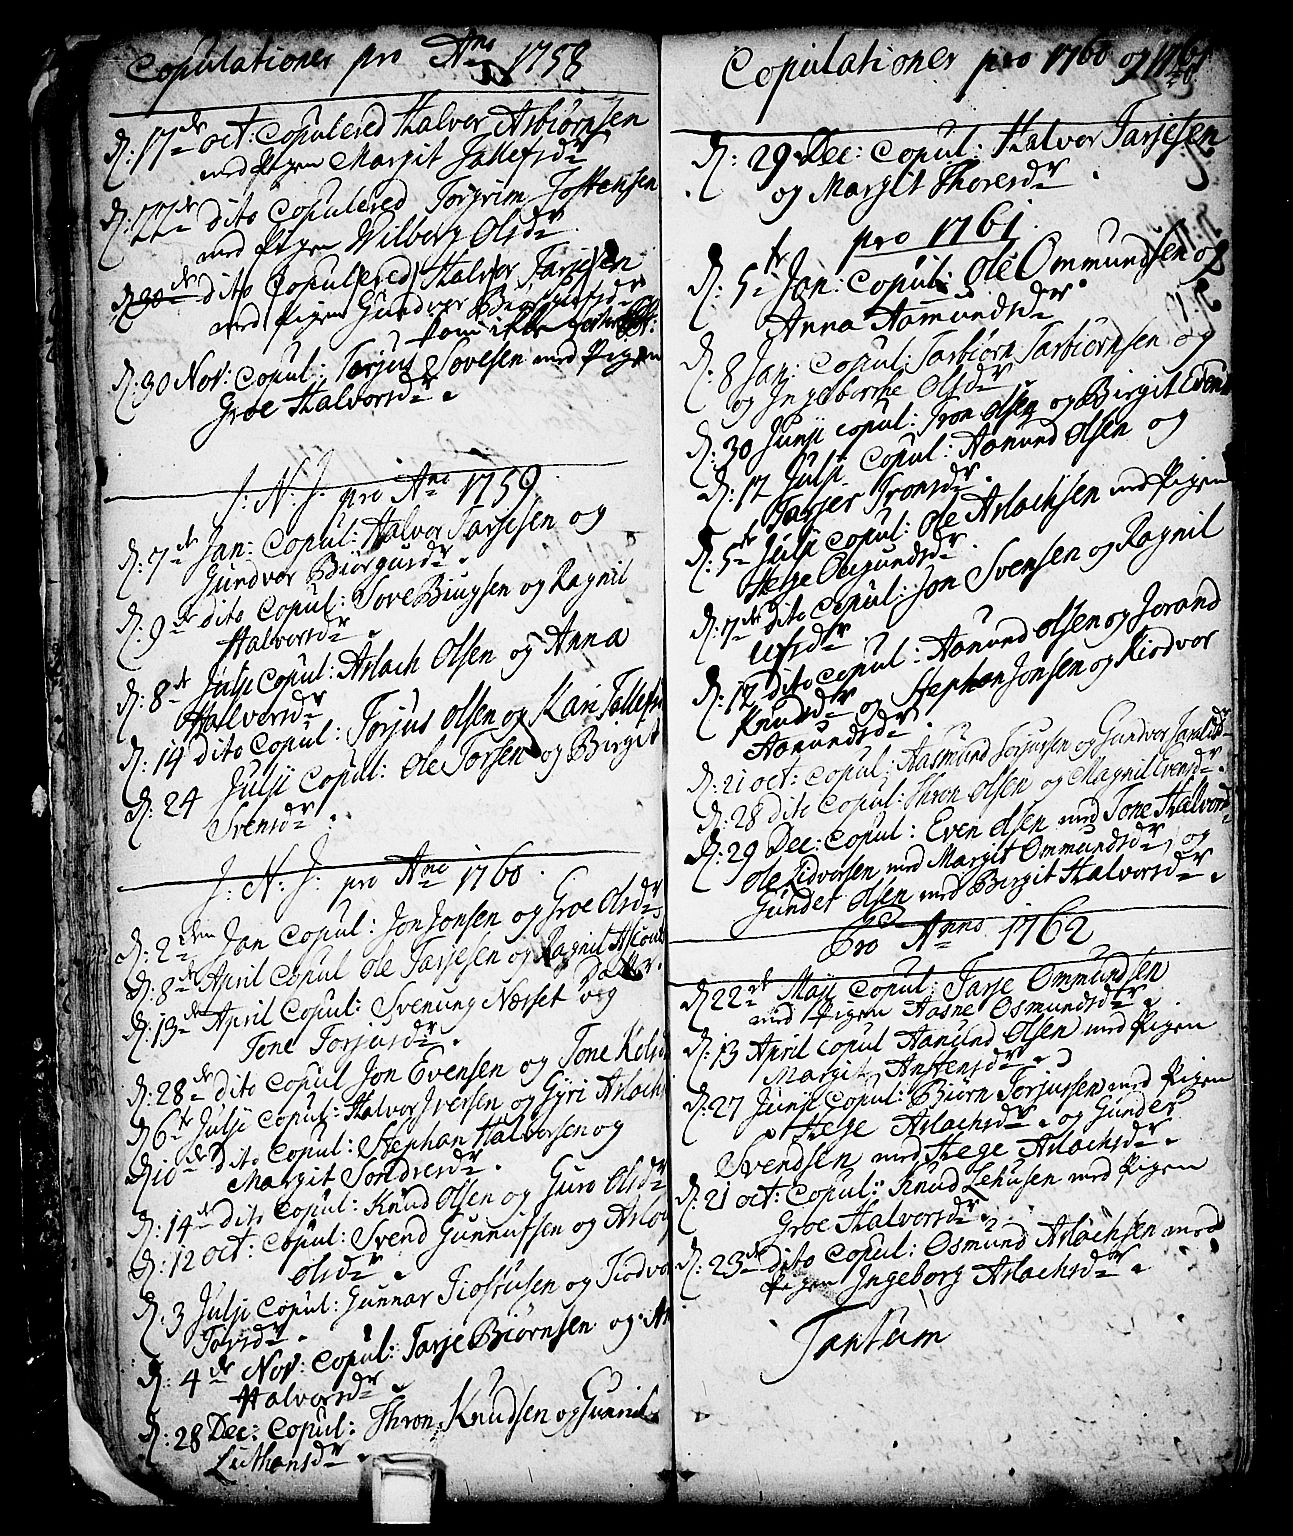 Copulationer pro Ano 1758
D: 17de oct: Copulered Halvor Asbiørnsen
med Pigen Margit Tallefsdr
D: 27de dito Copulered Torgrim Jostensen
med Pigen Wilborg Olsdr
D: 30de dito Copulered Halvor Tarjesen
med Pigen Gundvor Biørgusdr
som ikke
D: 30 Nov: Copul: Torjus Sovesen med Pigen
Groe Halvorsdr.
J: N: J: pro Ano 1759
D: 7de Jan: Copul: Halvor Tarjesen og
Gundvor Biørgusdr.
D: 9de dito Copul: Sove Biugsen og Ragnil
Halvorsdr.
D: 8de Julji Copul: Aslach Olsen og Anna
Halvorsdr
D: 14 dito Copul: Torjus Olsen og Kari Tallefsd
D: 24 Julji Copul: Ole Torsen og Birgit
Svensdr.
J: N: J: pro Ano 1760.
D: 2den Jan Copul: Jon Jonsen og Groe Olsdr
D: 8de April Copul Ole Tarjesen og Ragnil
Datter.
D: 13de April Copul: Svenung Næsset og
Tone Torjusdr.
D: 28de dito Copul Jon Evensen og Tone
D 6te Julji Copul: Halvor Iversen og Gyri Aslachs
D 10de dito Copul: Stephan Halvorsen og
Margit Sondresdr.
D: 14de dito Copul: Knud Olsen og Guro Olsdr
D: 12 oct: Copul: Svend Gunnufsen og
Olsdr.
D: 3 Julji Copul: Gunnar Tiostulsen og Kiodvor
Torsdr.
D: 4de Nov: Copul: Tarje Biørnsen og
Halvorsdr.
D: 28 Dec: Copul: Thron Knudsen og Gunnil
Copulationer pro 1760 og 1761
D: 29 Dec: Copul: Halvor Tarjesen
og Margit Thoresdr.
pro 1761
D: 5te Jan: Copul: Ole Ommundsen og
Anna Aamundsdr
D: 8 Jan: Copul: Tarbiørn Tarbiørnsen og
og Ingeborche Olsdr
D: 30 Junji Copul: Tron Olsen og Birgit Evens
D: 12 Julji Copul: Aanund Olsen og
Tarjer Tronsdr.
D: 5te Julji Copul: Ole Aslachsen med Pigen
Hege
D: 7de dito Copul: Jon Svensen og Ragnil
Ufsdr.
D: 12 dito Copul: Aanund Olsen og Jorand
Knudsdr og Stephan Jonsen og Kiodvor
Aanundsdr.
D: 21 oct: Copul: Aasmund Torjussen og Gundvor
D: 28 dito Copul: Thron Olsen og Magnil Evensdr.
D: 29 Dec: Copul: Even Olsen med Tone Halvorsdr
Ole Lidvorsen med Margit Ommundsdr, og
Gundet Olsen med Birgit Halvorsdr.
Pro Anno 1762
D 22de Maji Copul: Tarje Ommundsen
med Pigen Aasne Osmundsdr.
D: 13 April copul Aanund Olsen med Pigen
Margit Anstensdr.
D: 27 Junji Copul: Biørn Torjussen med Pigen
Hege Aslachsdr. og Gunder
Svendsen med Hege Aslachsdr.
D: 21 oct: Copul: Knud Lekusen med Pigen
Groe Halvorsdr.
D: 23de dito Copul: Osmund Aslachsen med
Pigen Ingeborg Aslachsdr.
Tantum